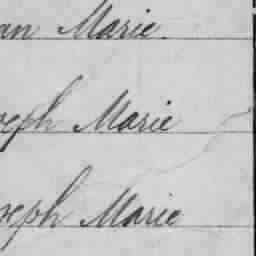 an Marie.
oseph Marie
oseph Marie